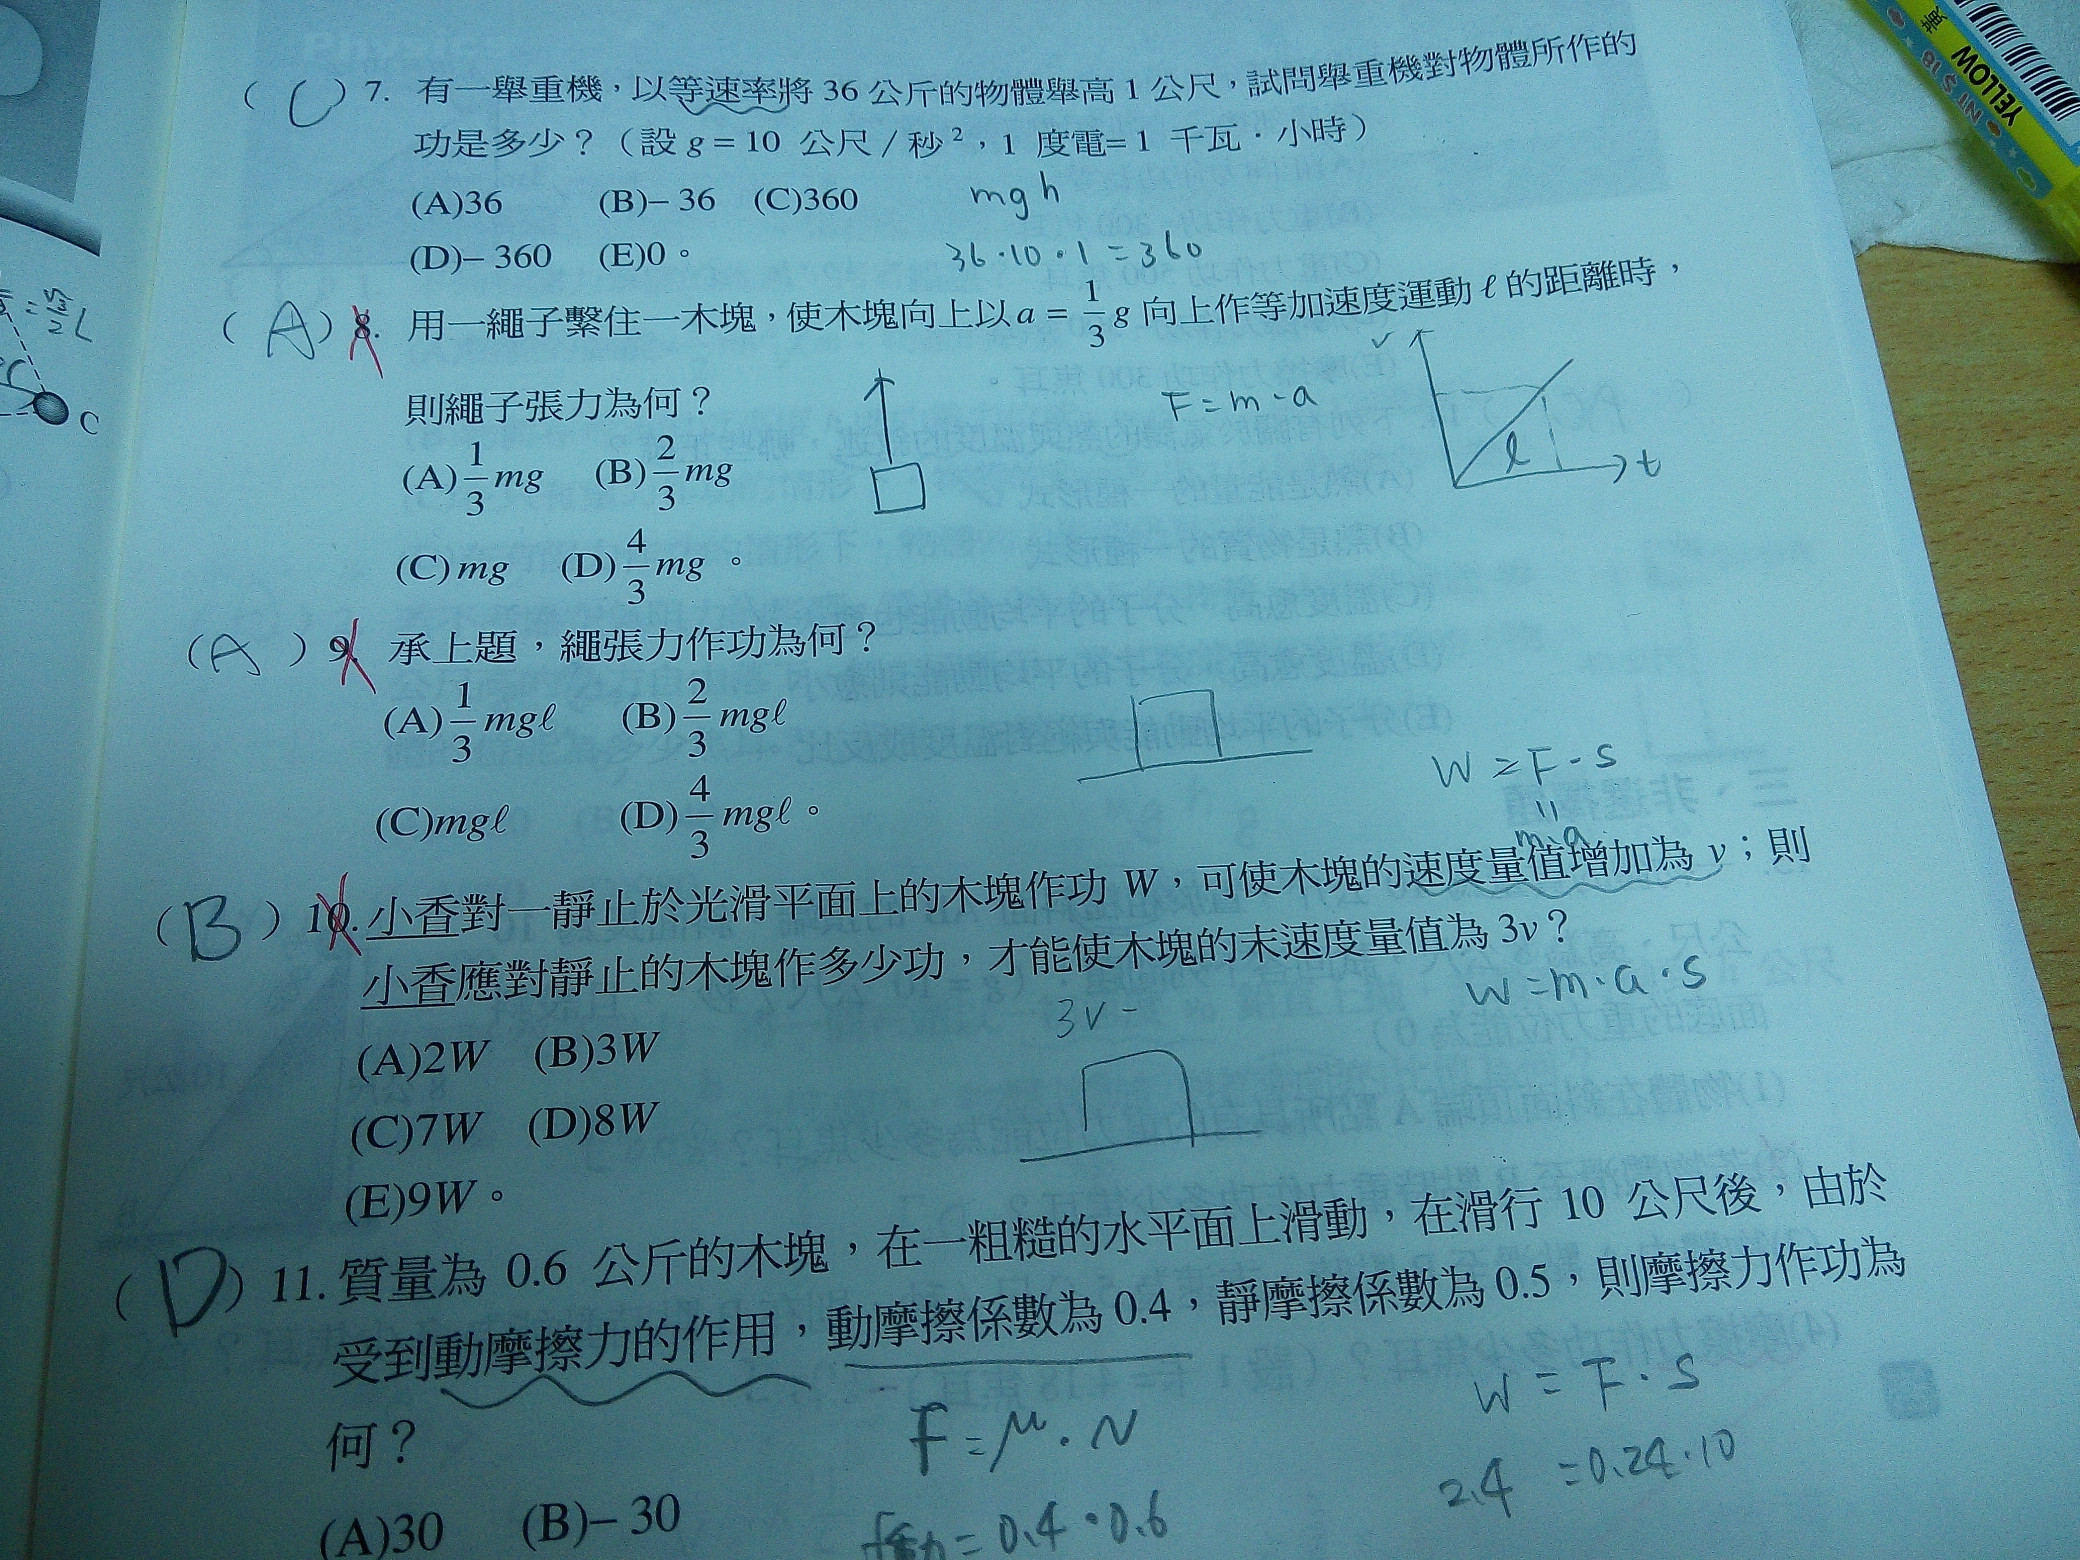 ( C ) 7. 有一舉重機，以等速率將 36 公斤的物體舉高 1 公尺，試問舉重機對物體所作的
功是多少？（設 g = 10 公尺 / 秒²，1 度電= 1 千瓦．小時）
(A)36 (B)– 36 (C)360
mgh
(D)– 360 (E)0。
36·10·1=360
( A ) 8. 用一繩子繫住一木塊，使木塊向上以 a = 1/3 g 向上作等加速度運動 ℓ 的距離時，
則繩子張力為何？
F=m·a
v
ℓ
t
(A) 1/3 mg (B) 2/3 mg
(C) mg (D) 4/3 mg 。
( A ) 9. 承上題，繩張力作功為何？
(A) 1/3 mgℓ (B) 2/3 mgℓ
(C)mgℓ (D) 4/3 mgℓ。
W=F·S
=
m·a
( B ) 10. 小香對一靜止於光滑平面上的木塊作功 W，可使木塊的速度量值增加為 v；則
小香應對靜止的木塊作多少功，才能使木塊的末速度量值為 3v？
W=m·a·S
3v -
(A)2W (B)3W
(C)7W (D)8W
(E)9W。
( D ) 11. 質量為 0.6 公斤的木塊，在一粗糙的水平面上滑動，在滑行 10 公尺後，由於
受到動摩擦力的作用，動摩擦係數為 0.4，靜摩擦係數為 0.5，則摩擦力作功為
何？
F=μ·N
W=F·S
2.4 =0.24·10
(A)30 (B)– 30
f動=0.4·0.6
= √3/2 L
C
YELLOW